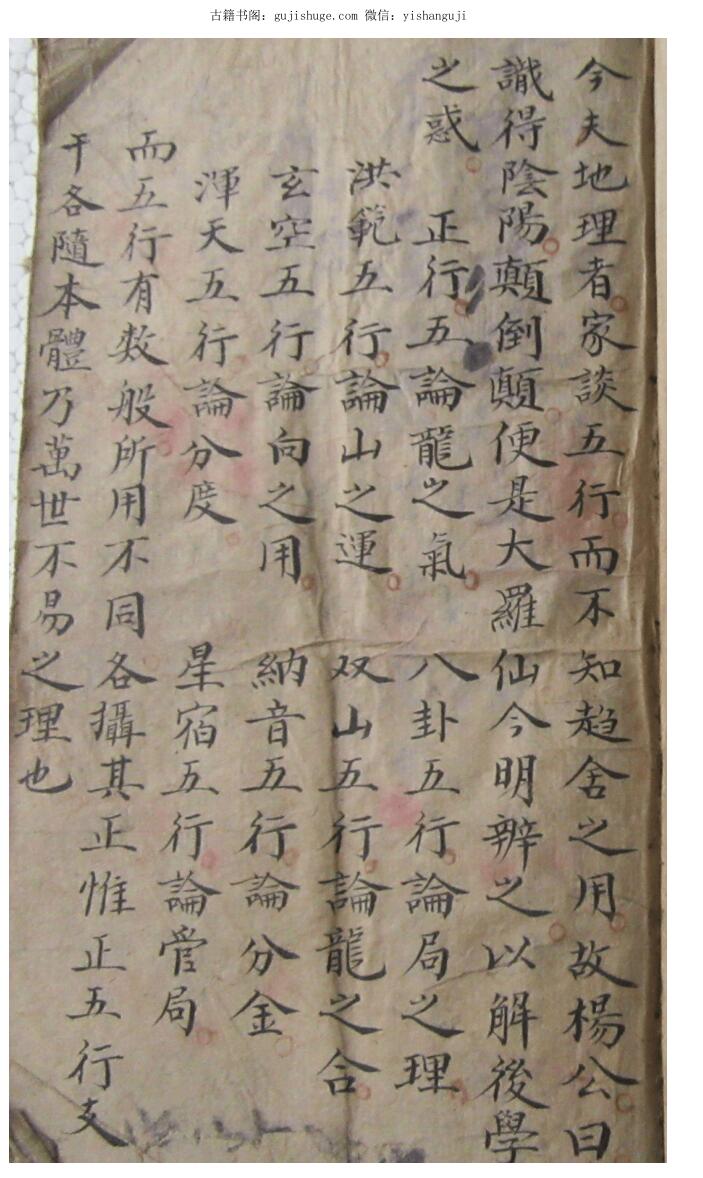 古籍书阁：gujishuge.com 微信：yishanguji
今夫地理者家談五行而不知趋舍之用故楊公曰
識得陰陽顛倒顛便是大羅仙今明辨之以解後學
之惑 正行五論龍之氣 八卦五行論局之理
洪範五行論山之運 双山五行論龍之合
玄空五行論向之用 納音五行論分金
渾天五行論分度 星宿五行論管局
而五行有数般所用不同各攝其正惟正五行支
干各隨本體乃萬世不易之理也